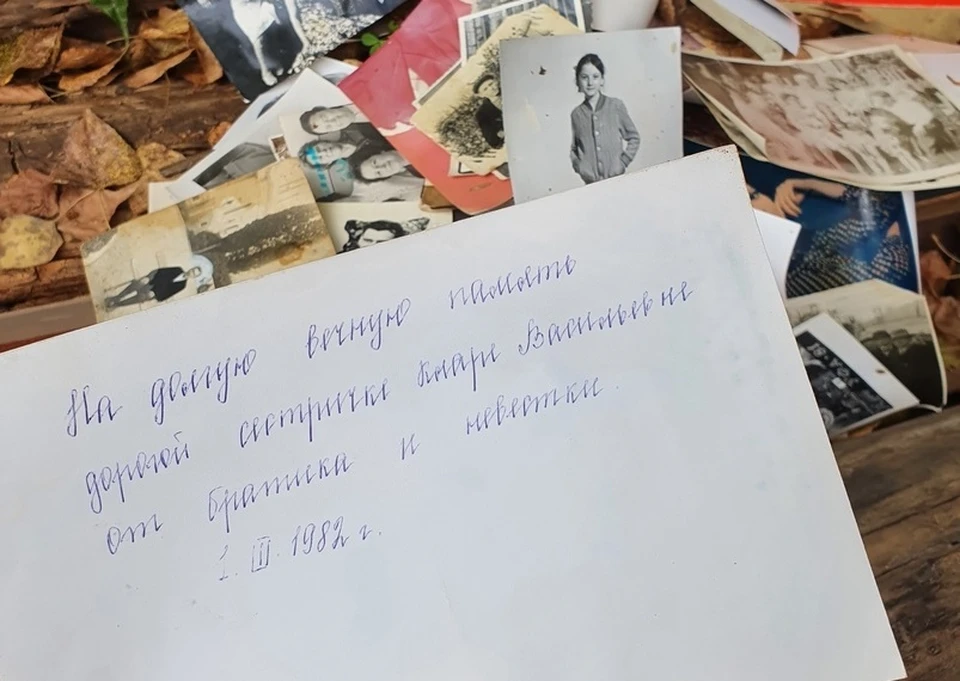 На долгую вечную память
дорогой сестричке Кларе Васильевне
от братика и невестки.
1. III. 1982 г.